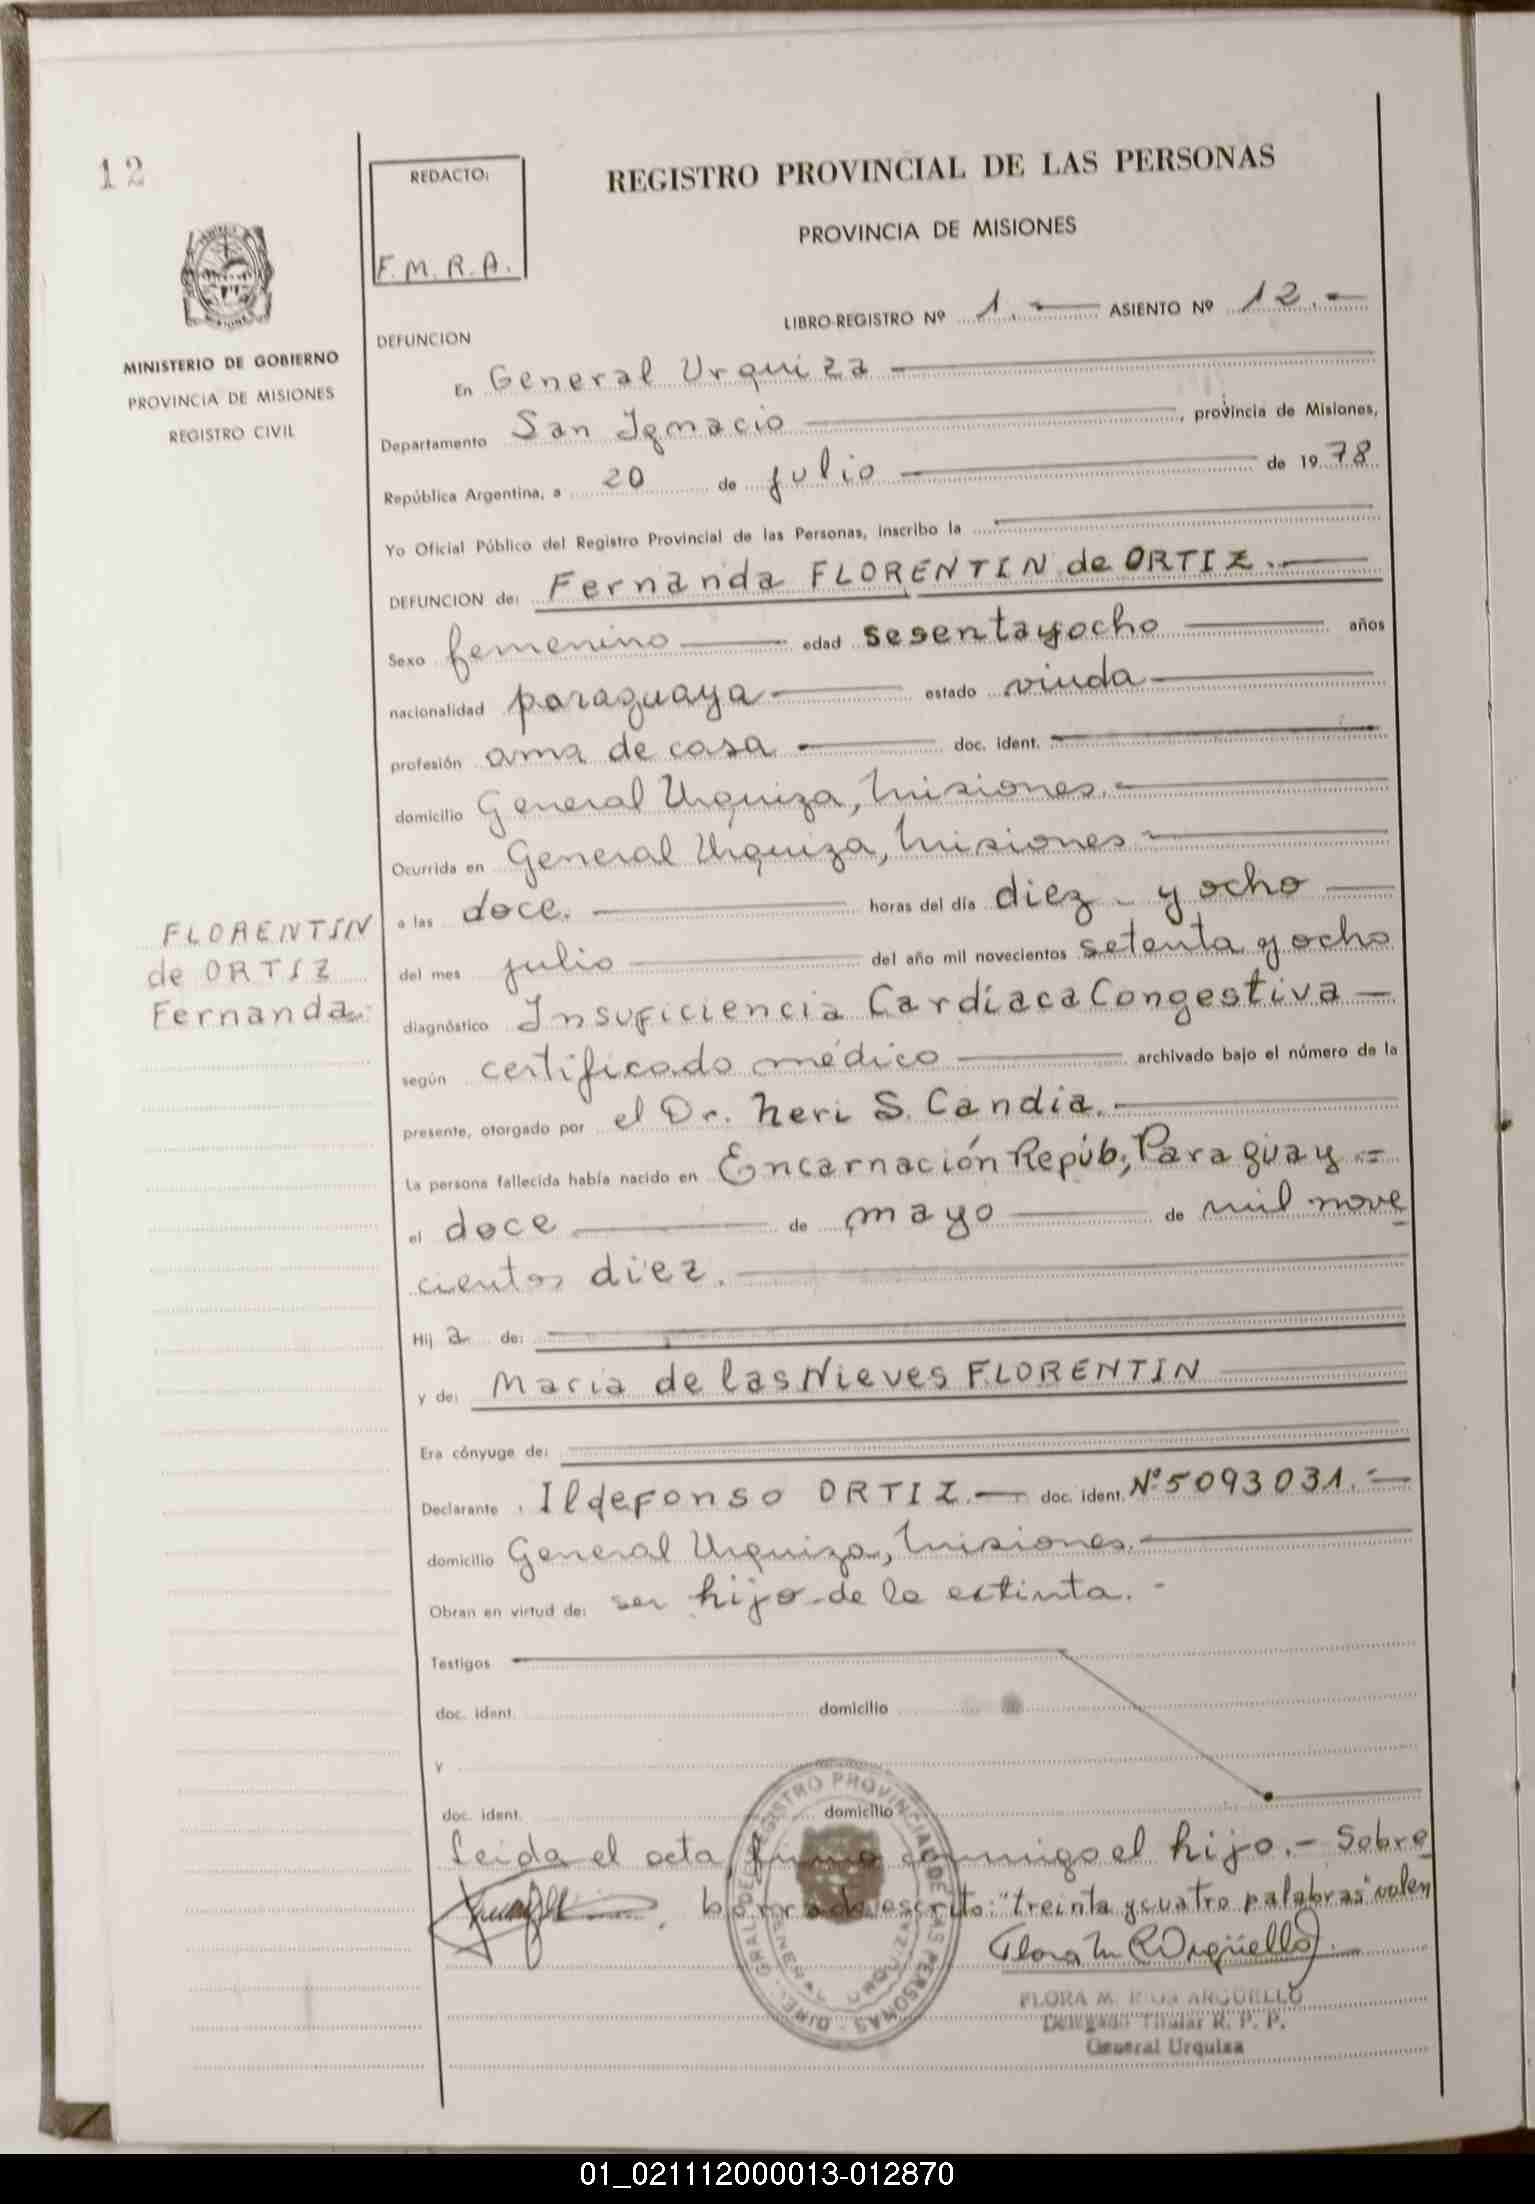 12
REDACTO:
F.M.R.A.
REGISTRO PROVINCIAL DE LAS PERSONAS
PROVINCIA DE MISIONES
LIBRO-REGISTRO Nº 1. ASIENTO Nº 12.-
MINISTERIO DE GOBIERNO
PROVINCIA DE MISIONES
REGISTRO CIVIL
DEFUNCION
En General Urquiza
Departamento San Ignacio, provincia de Misiones,
República Argentina, a 20 de julio de 1978
Yo Oficial Público del Registro Provincial de las Personas, inscribo la
DEFUNCION de: Fernanda FLORENTIN de ORTIZ.
Sexo femenino edad sesentayocho años
nacionalidad paraguaya estado viuda
profesión ama de casa doc. ident.
domicilio General Urquiza, Misiones.
Ocurrida en General Urquiza, Misiones
a las doce. horas del día diez y ocho
del mes julio del año mil novecientos setenta y ocho
FLORENTIN
de ORTIZ
Fernanda
diagnóstico Insuficiencia Cardíaca Congestiva
según certificado médico archivado bajo el número de la
presente, otorgado por el Dr. Neri S. Candia.
La persona fallecida había nacido en Encarnación Repúb, Paraguay =
el doce de mayo de mil nove
cientos diez.
Hija de:
y de: Maria de las Nieves FLORENTIN
Era cónyuge de:
Declarante Ildefonso ORTIZ. doc. ident. Nº 5093031.
domicilio General Urquiza, Misiones.
Obran en virtud de: ser hijo de la extinta.-
Testigos
doc. ident. domicilio
y
doc. ident. domicilio
Leida el acta, firma conmigo el hijo.- Sobre
borrado escrito: "treinta y cuatro palabras" valen
Flora M R Argüello
FLORA M. RIOS ARGUELLO
Delegado Titular R. P. P.
General Urquiza
DIREC. GRAL. DEL REGISTRO PROVINCIAL DE LAS PERSONAS
01_021112000013-012870